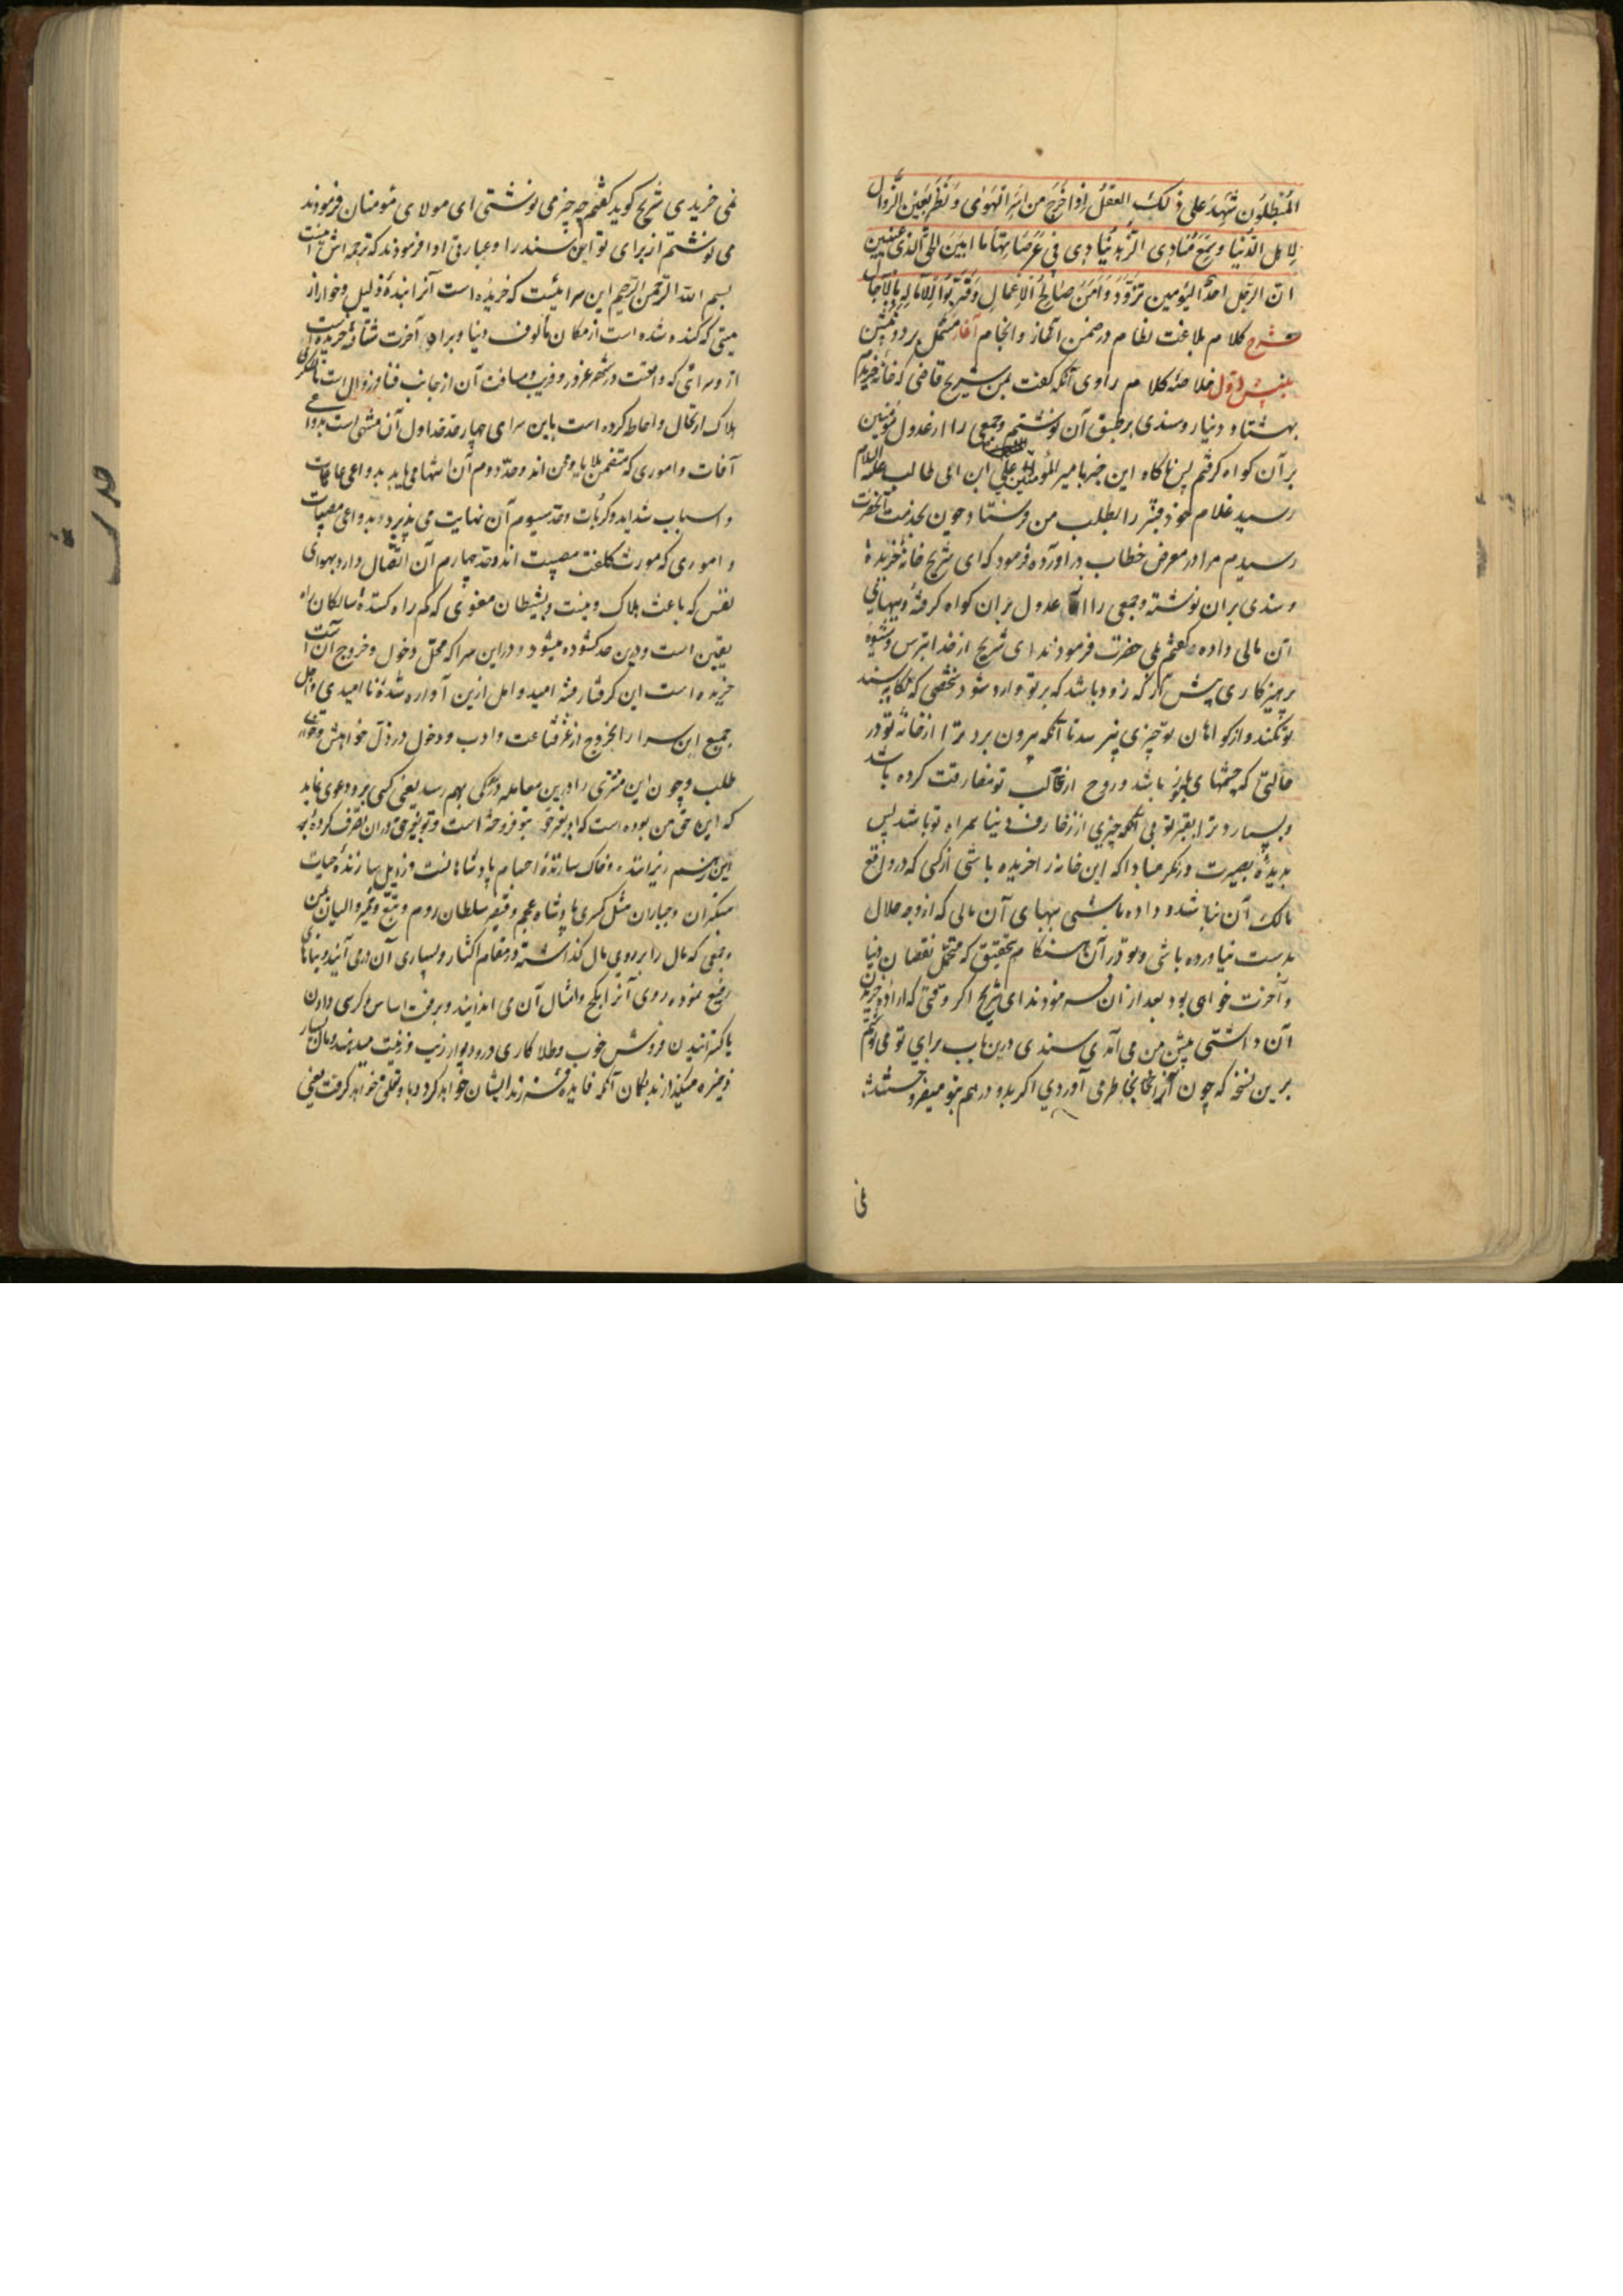 المُبْطِلُون شَهِدَ عَلى ذلكَ العَقلُ اِذا خَرَجَ مِن اَسْرِ الهَوٰى وَنَظَرَ بِعَينِ الزَّوالِ
لِاَهل الدّنيا وَسَمِعَ مُنادِى الزُّهدِ يُنادِى فِى عَرَصَاتِها مَا ابيَنَ الحَقَّ لِذى عَينَين
انّ الرّحيل احدُ اليَومين تَزَوَّدُوا مِن صَالِحِ الاَعمالِ وَقَرِّبُوا الآمَالَ بِالآجال
شرح كلام بلاغت نظام در ضمن آغاز و انجام آغاز مشتمل بر دو بينش
بينش اول خلاصهٔ كلام راوى آنكه كفت بمن شريح قاضى كه خانهٔ خريدم
بهشتاد دينار و سندى بر طبق آن نوشتم و جمعى را از عدول مؤمنين
بر آن كواه كرفتم پس ناكاه اين خبر بامير المؤمنين على ابن ابى طالب عليه السلام
رسيد غلام خود قنبر را بطلب من فرستاد چون بخدمت آنحضرت
رسيدم مرا در معرض خطاب در آورده فرمود كه اى شريح خانهٔ خريدهٔ
و سندى بر ان نوشته و جمعى را از عدول بر ان كواه كرفتهٔ و ببهاى
آن مالى داده كفتم بلى حضرت فرمودند اى شريح از خدا بترس و شيوهٔ
پرهيزكارى پيش آر كه زود باشد كه بر تو وارد شود شخصى كه نكاه بسند
تو نكند و از كواهان تو چيزى نپرسد تا آنكه بيرون برد ترا از خانهٔ تو در
حالتى كه چشمهاى باز باشد و روح از قالب تو مفارقت كرده باشد
و بسپارد ترا بقبر تو بى آنكه چيزى از زخارف دنيا همراه تو باشد پس
بديدهٔ بصيرت در نكر مبادا كه اين خانه را خريده باشى از كسى كه در واقع
مالك آن نباشد و داده باشى ببهاى آن مالى كه از وجه حلال
بدست نياورده باشى و تو در آن هنكام بتحقيق كه متحمل نقصان دنيا
و آخرت خواهى بود بعد از ان فرمودند اى شريح اكر وقتى كه ارادهٔ خريد
آن داشتى پيش من مى آمدى سندى درين باب براى تو مى نوشتم
برين نسخه كه چون آنرا بخاطر مى آوردى اكر بدو درهم بتو ميفروختند
نمى
نمى خريدى شريح كويد كفتم چه چيز مى نوشتى اى مولاى مؤمنان فرمودند
مى نوشتم از براى تو اين سند را و عبارتى ادا فرمودند كه ترجمه اش اينست
بسم الله الرّحمن الرّحيم اين سرائيست كه خريده است آنرا بندهٔ ذليل و خوار از
ميتى كه كنده شده است از مكان مألوف دنيا و براه آخرت شتافته خريده است
از و سرائى كه واقعست در شهر غرور و فريب و مسافت آن از جانب فنا و زوال است تا
هلاك ارتحال و احاطه كرده است باين سراى چهار حد حد اول آن منتهى است بدواعى
آفات و امورى كه متضمن بلايا و محن اند و حدّ دوم آن انتها مى يابد بدواعى عاهات
و اسباب شدايد و كربات و حدّ سيوم آن نهايت مى پذيرد بدواعى مصيبات
و امورى كه مورث كلفت مصيبت اند و حدّ چهارم آن اتّصال دارد بهواى
نفس كه باعث هلاك و بشيطان مغوى كه كم راه كنندهٔ سالكان راه
يقين است و درين حد كشوده ميشود در اين سرا كه محلّ دخول و خروج آن است
خريده است اين كرفتار فتنهٔ اميد و امل ازين آواره شدهٔ نا اميدى و اجل
جميع اين سرا را بخروج از عزّ قناعت و ادب و دخول در ذلّ خواهش و
طلب و چون اين مشترى را درين معامله دركى بهم رسد يعنى كسى بر و دعوى نمايد
كه اين حق من بوده است كه او بغير حق بتو فروخته است و تو بغير حق در ان تصرف كردهٔ
و خاك سازندهٔ اجسام پادشاهانست و زايل سازندهٔ حيات
متكبران و جباران مثل كسرى پادشاه عجم و قيصر سلطان روم و تبّع و حمير واليان يمن
و جمعى كه مال را بر روى مال كذاشته در مقام اكثار و بسيارى آن در مى آيند و بناهاى
رفيع نموده روى آنرا بكچ و امثال آن مى اندايند و برفعت اساس و كرسى دادن
يا كسترانيدن فروش خوب و طلا كارى در و ديوار زيب و زينت ميدهند و مال بسيار
ذخيره ميكذارند بكمان آنكه فايده فرزند ايشان خواهد كرد و باو تعلق خواهد كرفت يعنى